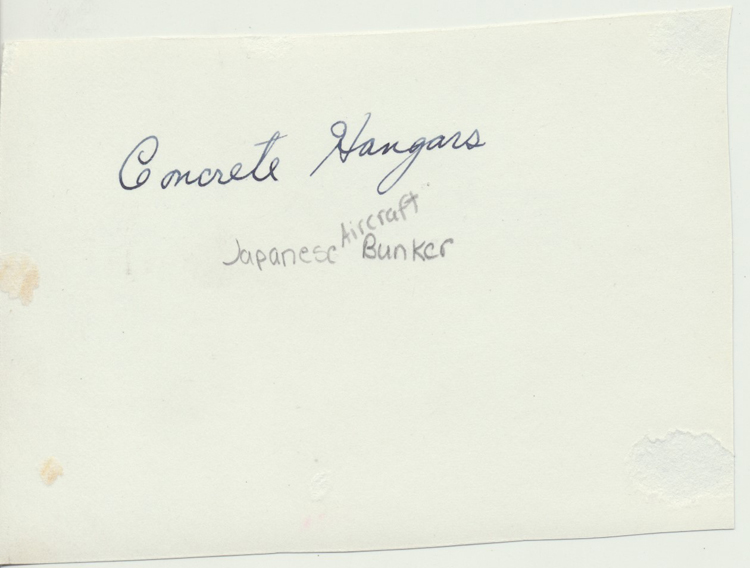 Concrete Hangars
Japanese Aircraft Bunker